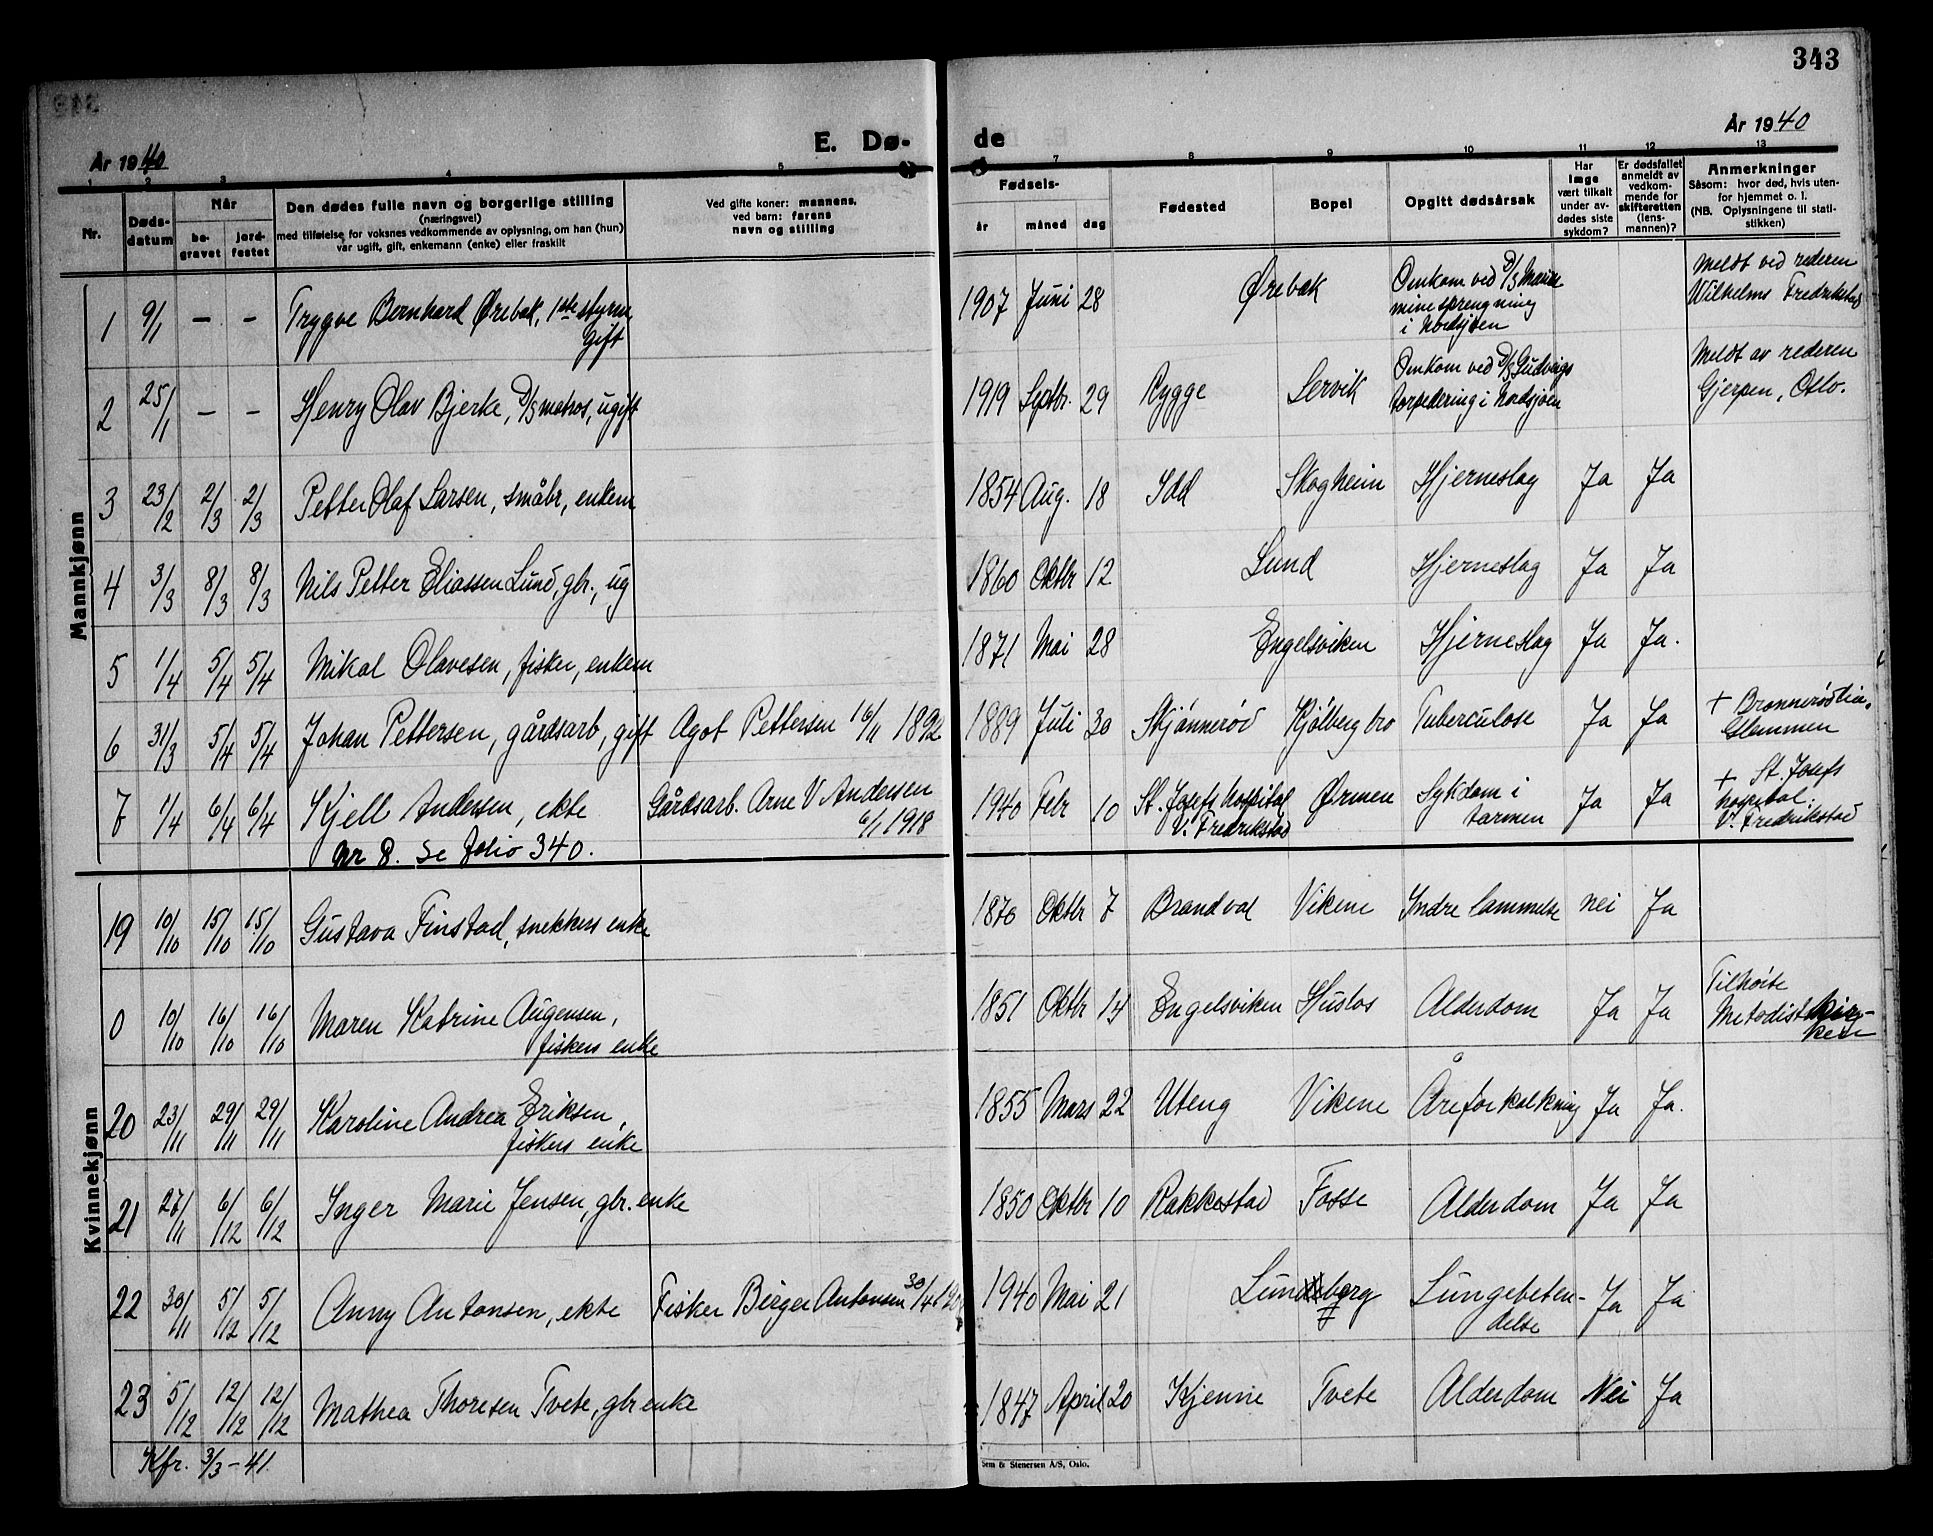 343
År 1940
E. Dø-
de
År 1940
1 2 3 4 5 7 8 9 10 11 12 13
Nr.
Døds-
datum
Når
be-
gravet
jord-
festet
Den dødes fulle navn og borgerlige stilling
(næringsvei)
med tilføielse for voksnes vedkommende av oplysning, om han (hun)
var ugift, gift, enkemann (enke) eller fraskilt
Ved gifte koner: mannens,
ved barn: farens
navn og stilling
Fødsels-
år måned dag
Fødested
Bopel
Opgitt dødsårsak
Har
læge
vært tilkalt
under av-
dødes siste
sykdom?
Er dødsfallet
anmeldt av
vedkom-
mende for
skifteretten
(lens-
mannen)?
Anmerkninger
Såsom: hvor død, hvis uten-
for hjemmet o. l.
(NB. Oplysningene til stati-
stikken)
Mannkjønn
1 9/1 — — Trygve Bernhard Ørebæk, 1ste styrm,
gift
1907 Juni 28 Ørebæk
Omkom ved D/S
minesprengning
i Nordsjøen
Meldt ved rederen
Wilhelms Fredrikstad
2 25/1 — — Henry Olav Bjerke, D/S matros, ugift
1919 Septbr. 29 Rygge Lervik
Omkom ved D/S Gudveigs
torpedering i Nordsjøen
Meldt av rederen
Gjerpen, Oslo.
3 23/2 2/3 2/3 Petter Olaf Larsen, småbr, enkem 1854 Aug. 18 Idd Skogheim Hjerneslag Ja Ja
4 3/3 8/3 8/3 Nils Petter Eliassen Lund, gbr., ug 1860 Oktbr 12 Lund Hjerneslag Ja Ja
5 1/4 5/4 5/4 Mikal Olavesen, fisker, enkem 1871 Mai 28 Engelsviken Hjerneslag Ja Ja.
6 31/3 5/4 5/4 Johan Pettersen, gårdsarb, gift Agot Pettersen 16/11 1892 1889 Juli 30 Skjønnerød Kjølberg bro Tuberculose Ja Ja
Glemmen
7 1/4 6/4 6/4 Kjell Andersen, ekte Gårdsarb. Arne V Andersen
6/1 1918
1940 Febr 10 St. Josefs hospital
V. Fredrikstad
Ørmen Sykdom i
tarmen
Ja Ja
+ St. Josefs
hospital.
V. Fredrikstad
Nr 8. Se folio 340.
Kvinnekjønn
19 10/10 15/10 15/10 Gustava Finstad, snekkers enke 1870 Oktbr 7 Brandval Vikene Indre lammelse nei Ja
0 10/10 16/10 16/10 Maren Katrine Augensen,
fiskers enke
1851 Oktbr 14 Engelsviken Huslos Alderdom Ja Ja
Tilhørte
Metodistkir-
ken
20 23/11 29/11 29/11 Karoline Andrea Eriksen,
fiskers enke
1855 Mars 22 Uteng Vikene Åreforkalkning Ja Ja.
21 27/11 6/12 6/12 Inger Marie Jensen, gbr. enke 1850 Oktbr 10 Rakkestad Fosse Alderdom Ja Ja
22 30/11 5/12 5/12 Anny Antonsen, ekte Fisker Birger Antonsen 30/4
1940 Mai 21 Lundberg Lungebeten-
delse
Ja Ja
23 5/12 12/12 12/12 Mathea Thoresen Tvete, gbr enke 1847 April 20 Kjenne Tvete Alderdom Nei Ja
Kfr. 3/3 - 41.
Sem & Stenersen A/S, Oslo.